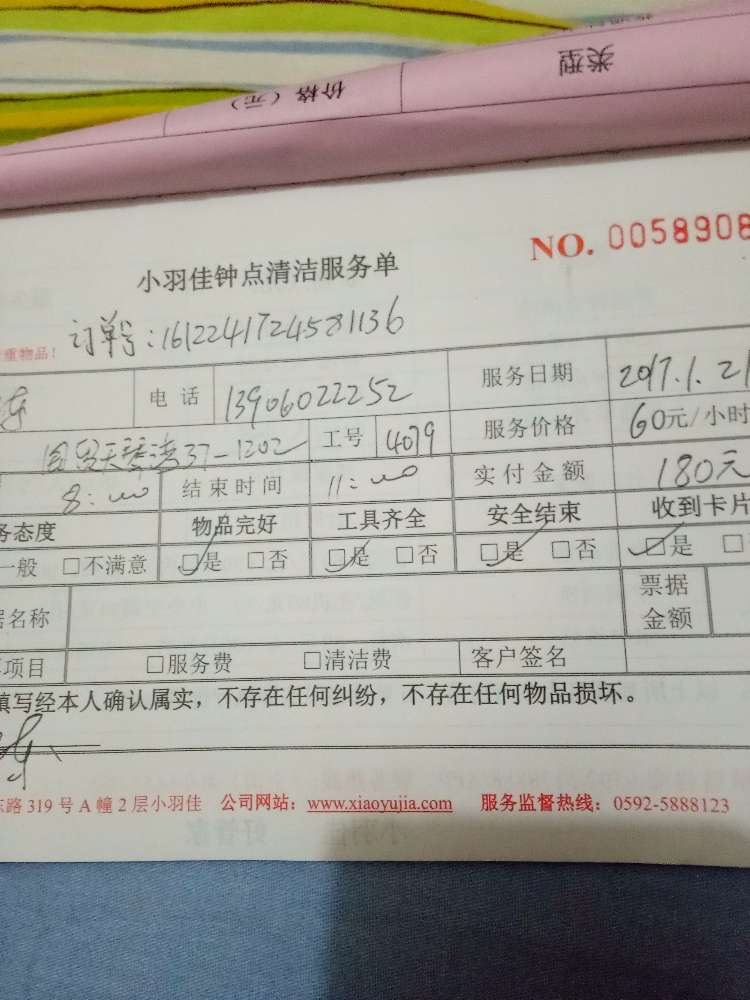 类型
价格（元）
NO. 0058908
小羽佳钟点清洁服务单
订单号：1612241724581136
重物品！
电话 13906022252 服务日期 2017.1.21
国贸天琴湾37-1202 工号 4079 服务价格 60元/小时
8:00 结束时间 11:00 实付金额 180元
务态度 物品完好 工具齐全 安全结束 收到卡片
一般 □不满意 □是 □否 □是 □否 □是 □否 □是 □
据名称 票据金额
项目 □服务费 □清洁费 客户签名
填写经本人确认属实，不存在任何纠纷，不存在任何物品损坏。
东路319号A幢2层小羽佳 公司网站：www.xiaoyujia.com 服务监督热线：0592-5888123